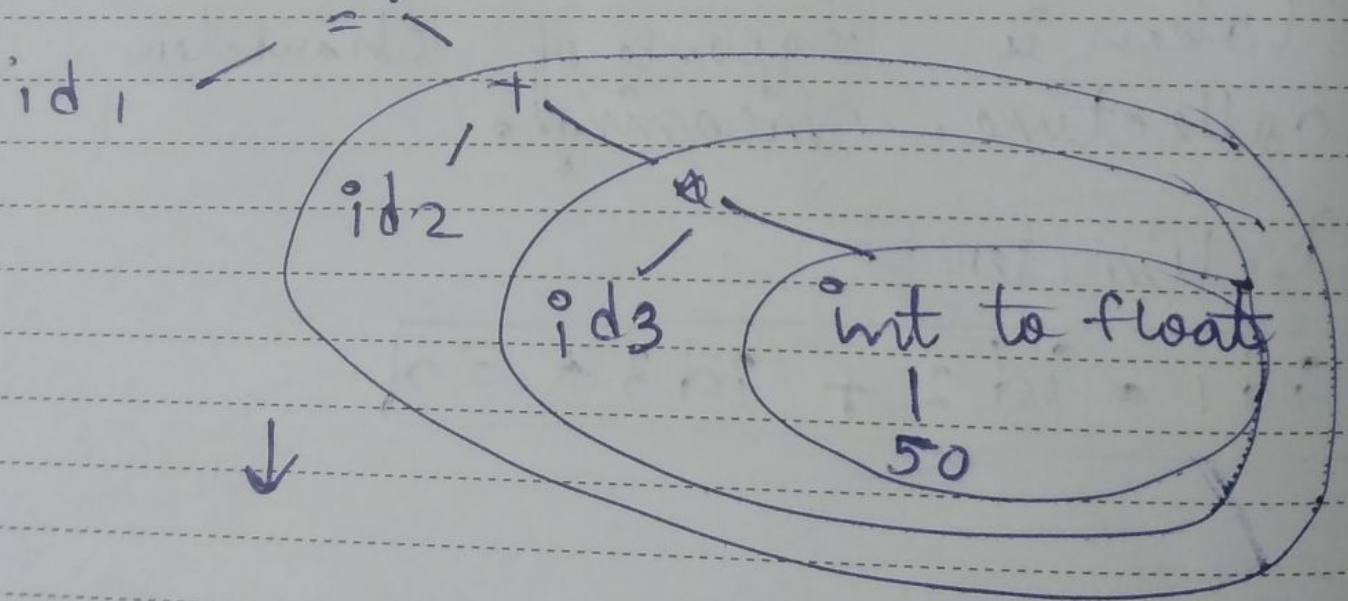 =
id1
+
id2
*
id3
int to float
50